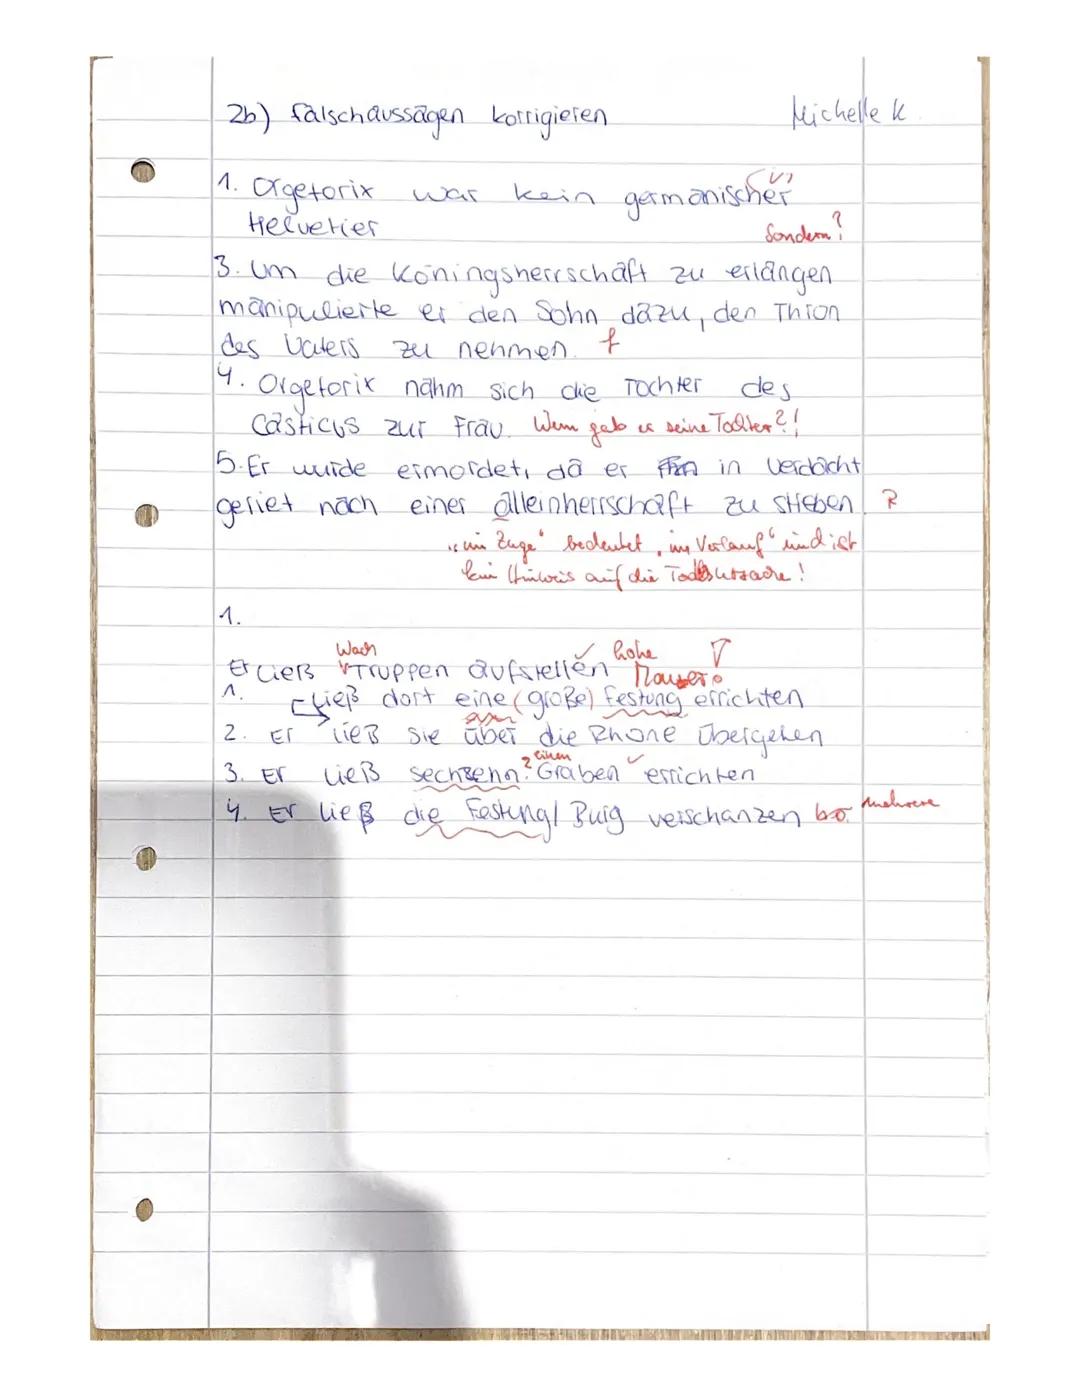 2b) Falschaussagen korrigieren Michelle K.
1. Orgetorix war kein germanischer (✓)
Helvetier Sondern?
3. Um die Köningsherrschaft zu erlangen
manipulierte er den Sohn dazu, den Thron
des Vaters zu nehmen. f
4. Orgetorix nahm sich die Tochter des
Casticus zur Frau. Wem gab er seine Tochter?!
5. Er wurde ermordet, da er in Verdacht
geriet nach einer Alleinherrschaft zu streben. R
"im Zuge" bedeutet "im Verlauf" und ist
kein Hinweis auf die Todesursache!
1.
Wach ✓ hohe
Er ließ Truppen aufstellen Mauer
1. ließ dort eine (große) Festung errichten
2. Er ließ sie über die Rhone übergehen
? einen ✓
3. Er ließ sechzehn Graben errichten
4. Er ließ die Festung/ Burg verschanzen mehrere